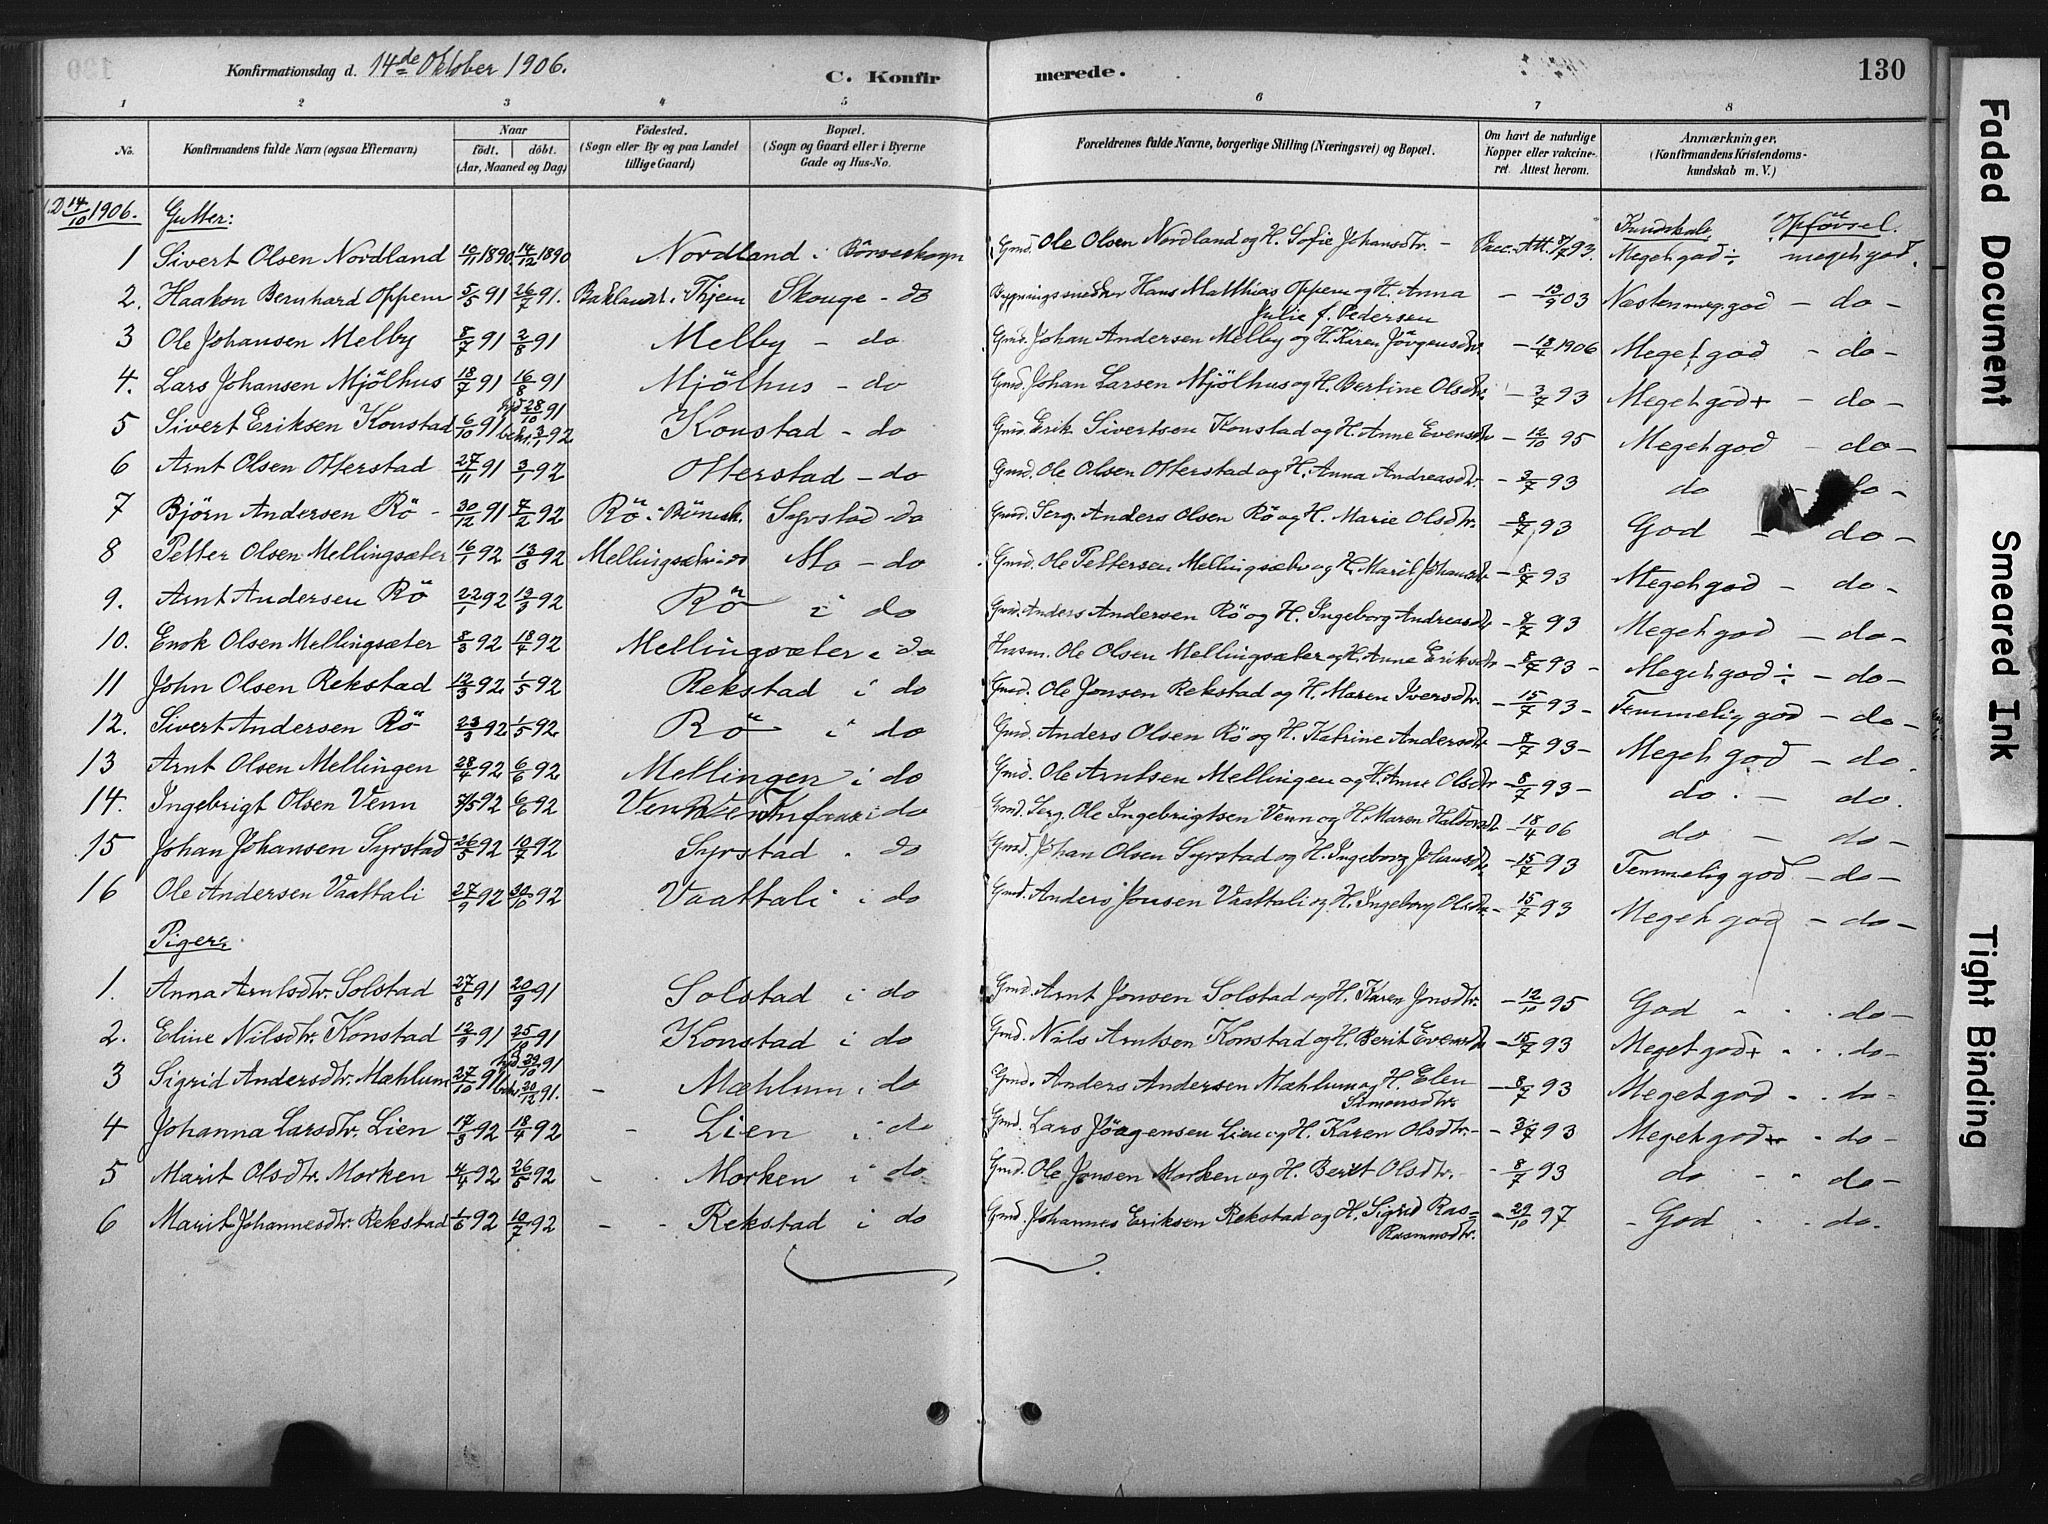 Konfirmationsdag d. 14de Oktober 1906. C. Konfir merede. 130
1 2 3 4 5 6 7 8
No. Konfirmandens fulde Navn (ogsaa Efternavn) Naar födt. döbt. (Aar, Maaned og Dag) Födested. (Sogn eller By og paa Landet tillige Gaard) Bopæl. (Sogn og Gaard eller i Byerne Gade og Hus-No. Forældrenes fulde Navne, borgerlige Stilling (Næringsvei) og Bopæl. Om havt de naturlige Kopper eller vakcineret. Attest herom. Anmærkninger. (Konfirmandens Kristendomskundskab m. V.)
14/10 1906. Gutter: Kundskab. Opførsel.
1 Sivert Olsen Nordland 10/11 1890. 14/12 1890 Nordland i Börseskogn Gmd. Ole Olsen Nordland og H. Sofie Johansdtr. - Vacc. Att. 8/7 93. Meget god ÷ meget god.
2. Haakon Bernhard Oppem 5/5 91 26/7 91. Baklandet i Thjem Skouge - do Bygningssnedker Hans Matthias Oppem og H. Anna Julie f. Pedersen - 13/9 03 Næsten meg. god - do -
3 Ole Johansen Melby 8/7 91 2/8 91 Melby - do Gmd. Johan Andersen Melby og H. Karen Jörgensdtr. - 18/4 1906 Meget god - do -
4. Lars Johansen Mjölhus 18/7 91 16/8 91 Mjölhus - do Gmd. Johan Larsen Mjölhus og H. Bertine Olsdtr - 3/7 93 Meget god + - do -
5 Sivert Eriksen Konstad 6/10 91 hjd 28/10 91 bekr. 3/1 92 Konstad - do Gmd. Erik Sivertsen Konstad og H. Anne Evensdtr - 12/10 95 Meget god - do -
6 Arnt Olsen Otterstad 27/11 91 3/1 92 Otterstad - do Gmd. Ole Olsen Otterstad og H. Anna Andreasdtr. - 3/7 93 do - do -
7 Björn Andersen Rö - 30/12 91 7/2 92 Rö i Börsesk. Syrstad - do Gmd. Serg. Anders Olsen Rö og H. Marie Olsdtr. - 8/7 93 God - do -
8 Petter Olsen Mellingsæter 16/1 92 13/3 92 Mellingsæter i do Mo - do Gmd. Ole Pettersen Mellingsætr og H. Marit Johansdtr - 8/7 93 Meget god - do -
9. Arnt Andersen Rö 22/1 92 13/3 92 Rö i do Gmd. Anders Andersen Rö og H. Ingeborg Andreasdtr - 8/7 93 Meget god - do -
10. Enok Olsen Mellingsæter 8/3 92 18/4 92 Mellingsæter i do Husm. Ole Olsen Mellingsæter og H. Anne Eriksdtr - 8/7 93 - Meget god ÷ - do -
11 John Olsen Rekstad 12/3 92 1/5 92 Rekstad i do Gmd. Ole Jonsen Rekstad og H. Maren Iversdtr - 15/7 93 - Temmelig god - do -
12. Sivert Andersen Rö 23/3 92 1/5 92. Rö i do Gmd. Anders Olsen Rö og H. Katrine Andersdtr - 8/7 93 - Meget god - do.
13 Arnt Olsen Mellingen 28/4 92 6/6 92 Mellingen i do Gmd. Ole Arntsen Mellingen og H. Anne Olsdtr - 8/7 93 - do - do.
14. Ingebrigt Olsen Venn 7/5 92 6/6 92 Venn i do Gmd. Serg. Ole Ingebrigtsen Venn og H. Maren Haldorsdtr - 18/4 06 do - do -
15 Johan Johansen Syrstad 26/5 92 10/7 92 Syrstad - do Gmd. Johan Olsen Syrstad og H. Ingeborg Johansdtr - 15/7 93 Temmelig god - do -
16 Ole Andersen Vaattali 27/9 92 30/10 92 Vaattali i do Gmd. Anders Jonsen Vaattali og H. Ingeborg Olsdtr - 15/7 93 Meget god - do -
Piger:
1. Anna Arntsdtr. Solstad 27/8 91 20/9 91 Solstad i do Gmd. Arnt Jonsen Solstad og H. Karen Jonsdtr. - 12/10 95 God do -
2. Eline Nilsdtr. Konstad 12/9 91 25/10 91 Konstad i do Gmd. Nils Arntsen Konstad og H. Berit Evensdtr - 15/7 93 Meget god + do -
3 Sigrid Andersdtr. Mæhlum 27/10 91 hjd 29/10 91 bekr. 20/12 91. - Mæhlum i do Gmd. Anders Andersen Mæhlum og H. Elen Simonsdtr. - 8/7 93 Meget god do -
4 Johanna Larsdtr. Lien 17/3 92 18/4 92 - Lien i do Gmd. Lars Jörgensen Lien og H. Karen Olsdtr. - 3/7 93 Meget god + do -
5 Marit Olsdtr. Morken 4/4 92 26/5 92 - Morken i do Gmd. Ole Jonsen Morken og H. Beret Olsdtr. - 8/7 93 do do -
6 Marit Johannesdtr. Rekstad 1/6 92 10/7 92 - - Rekstad i do Gmd. Johannes Eriksen Rekstad og H. Sigrid Ras= Rasmusdtr. - 29/10 97 - God do -
Faded Document
Smeared Ink
Tight Binding